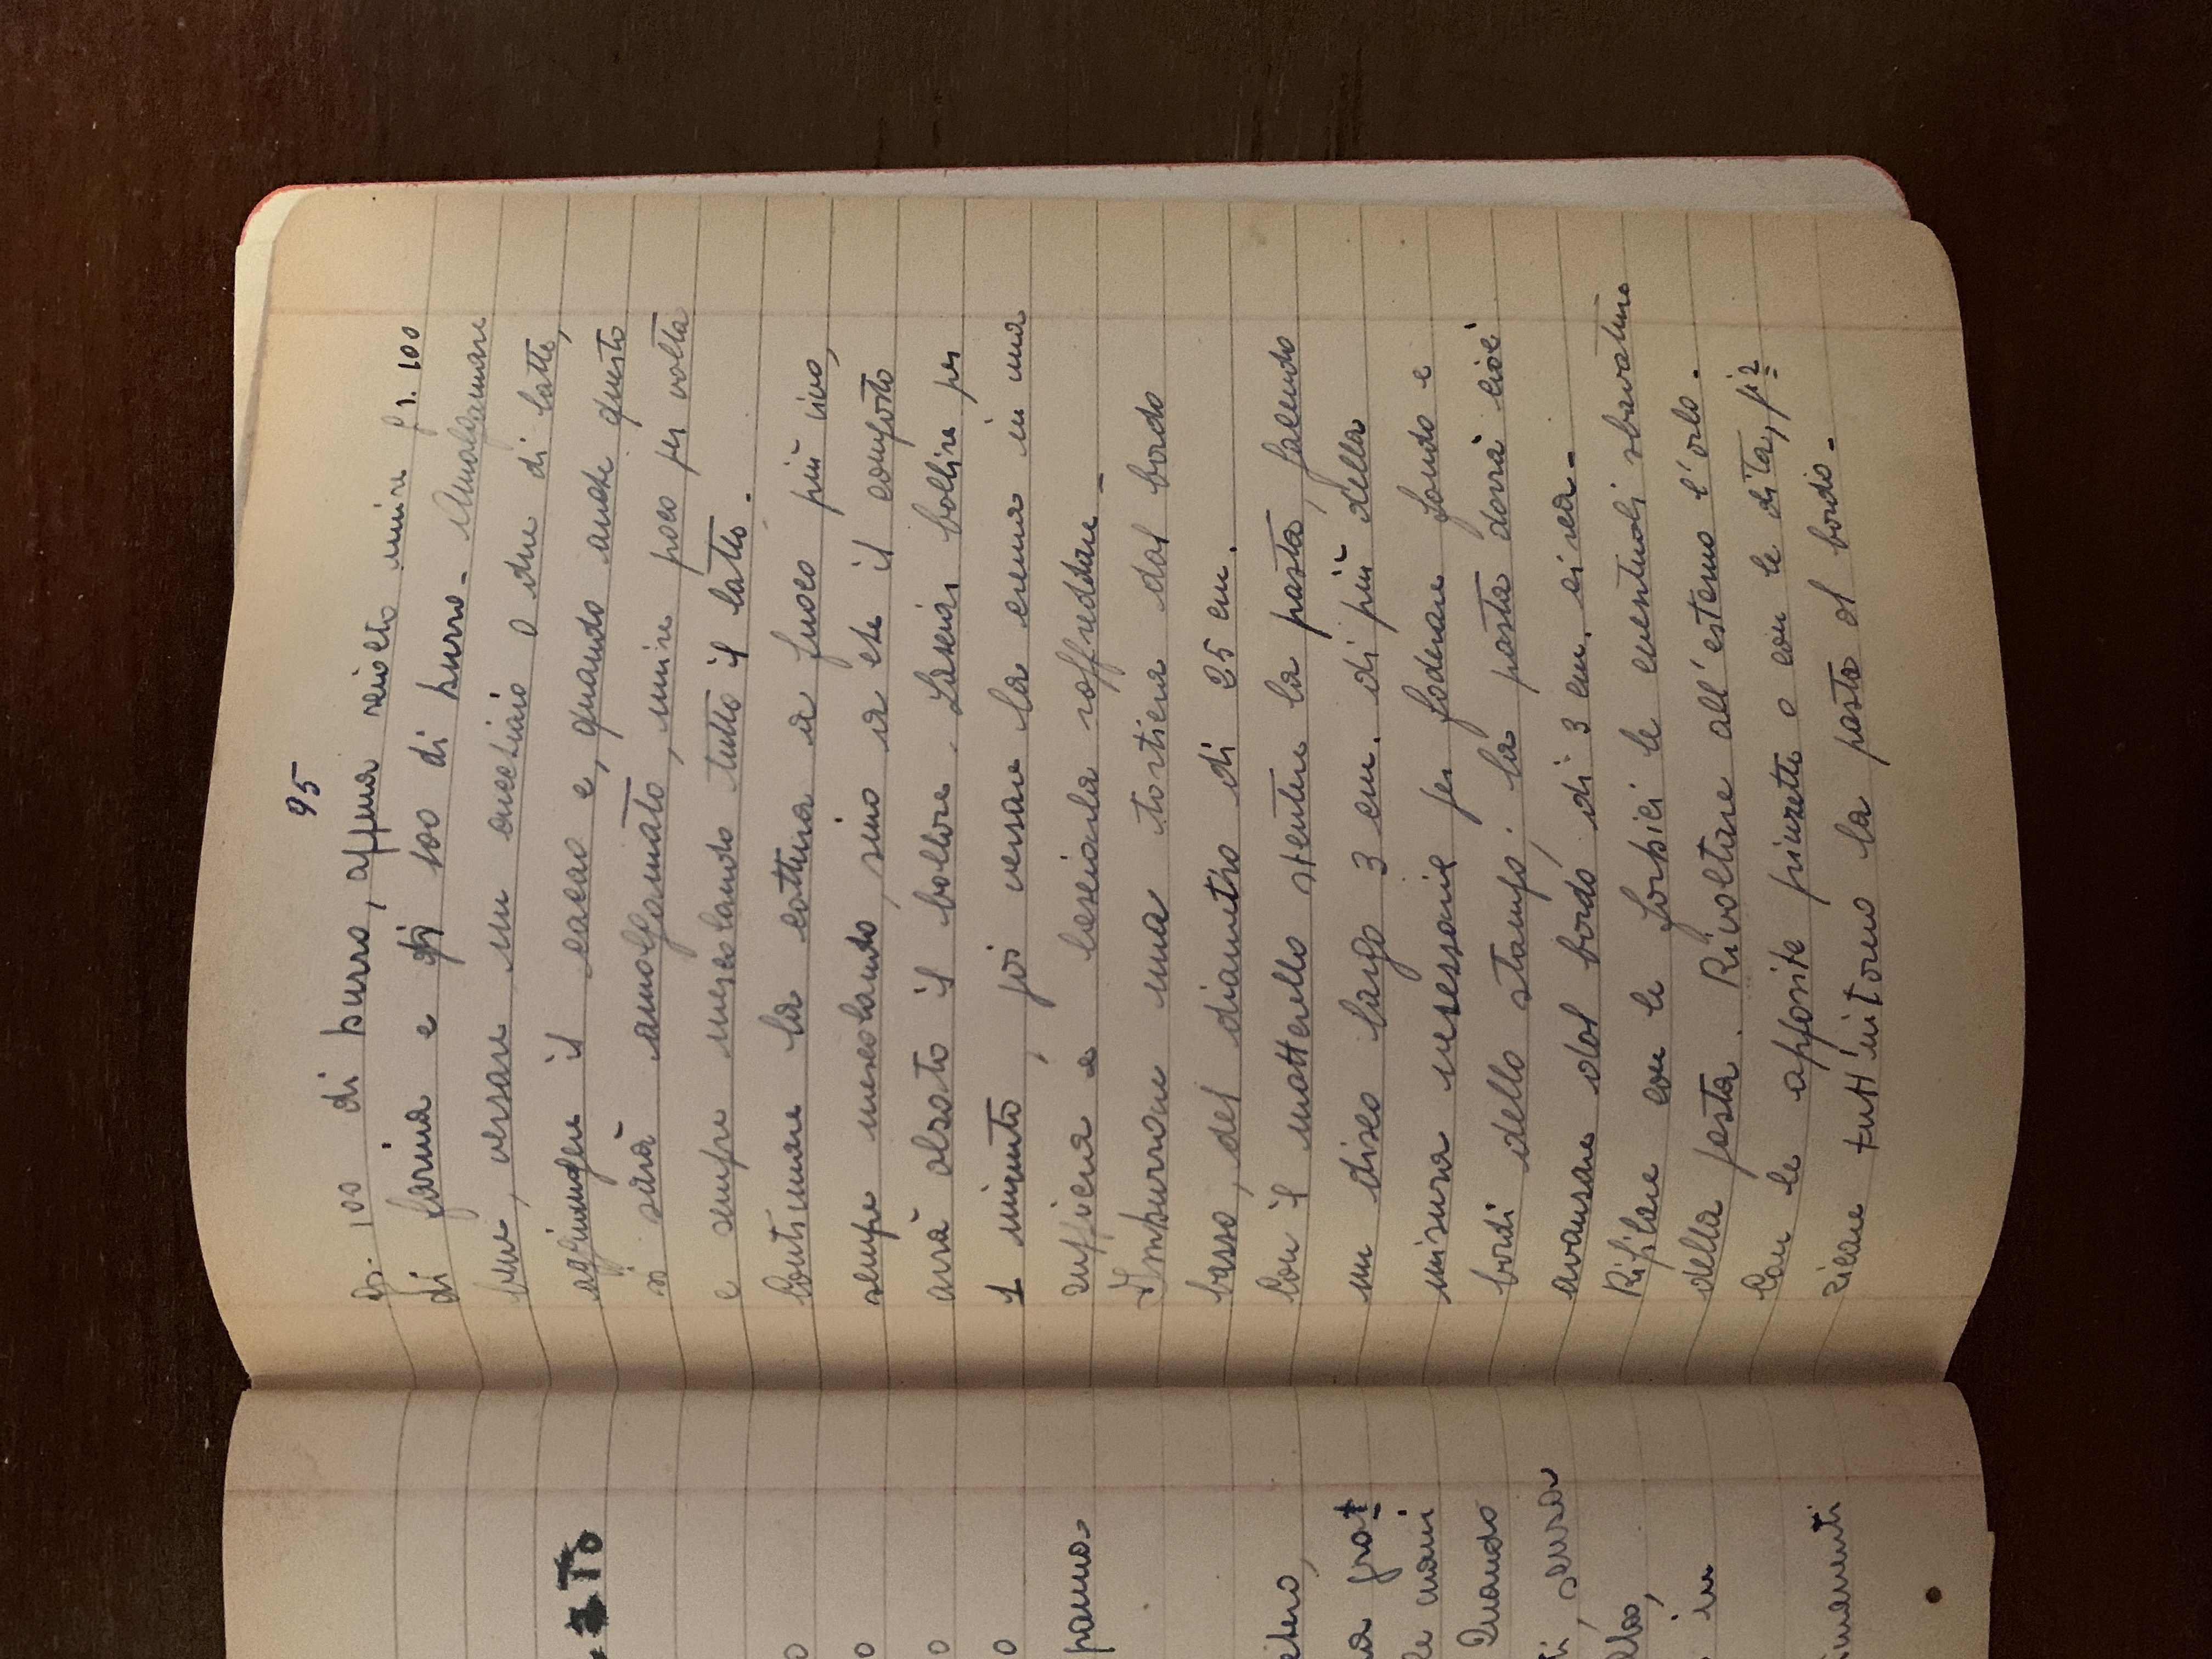 zato
o
o
o
o
panna
etero,
a grat
le mani
Quando
ti, senza
in
imanenti
95
gr. 100 di burro, appena sciolto unire gr. 100
di farina e gr 100 di burro - Amalgamare
bene, versare un cucchiaio o due di latte,
aggiungere il cacao e, quando anche questo
si sarà amalgamato, unire poco per volta
e sempre mescolando tutto il latte.
Continuare la cottura a fuoco più vivo,
sempre mescolando, sino a che il composto
avrà alzato il bollore. Lasciar bollire per
1 minuto, poi versare la crema in una
zuppiera e lasciarla raffreddare -
Imburrare una tortiera dal bordo
basso, del diametro di 25 cm.
Con il matterello stentere la pasta, facendo
un disco largo 3 cm. di più della
misura necessarie per foderare fondo e
bordi dello stampo; la pasta dovrà cioè
avanzare dal bordo di 3 cm. circa -
Rifilare con le forbici le eventuali sbavature
della pasta. Rivoltare all'esterno l'orlo.
Con le apposite pinzette o con le dita, piz
zicare tutt'intorno la pasta al bordo -